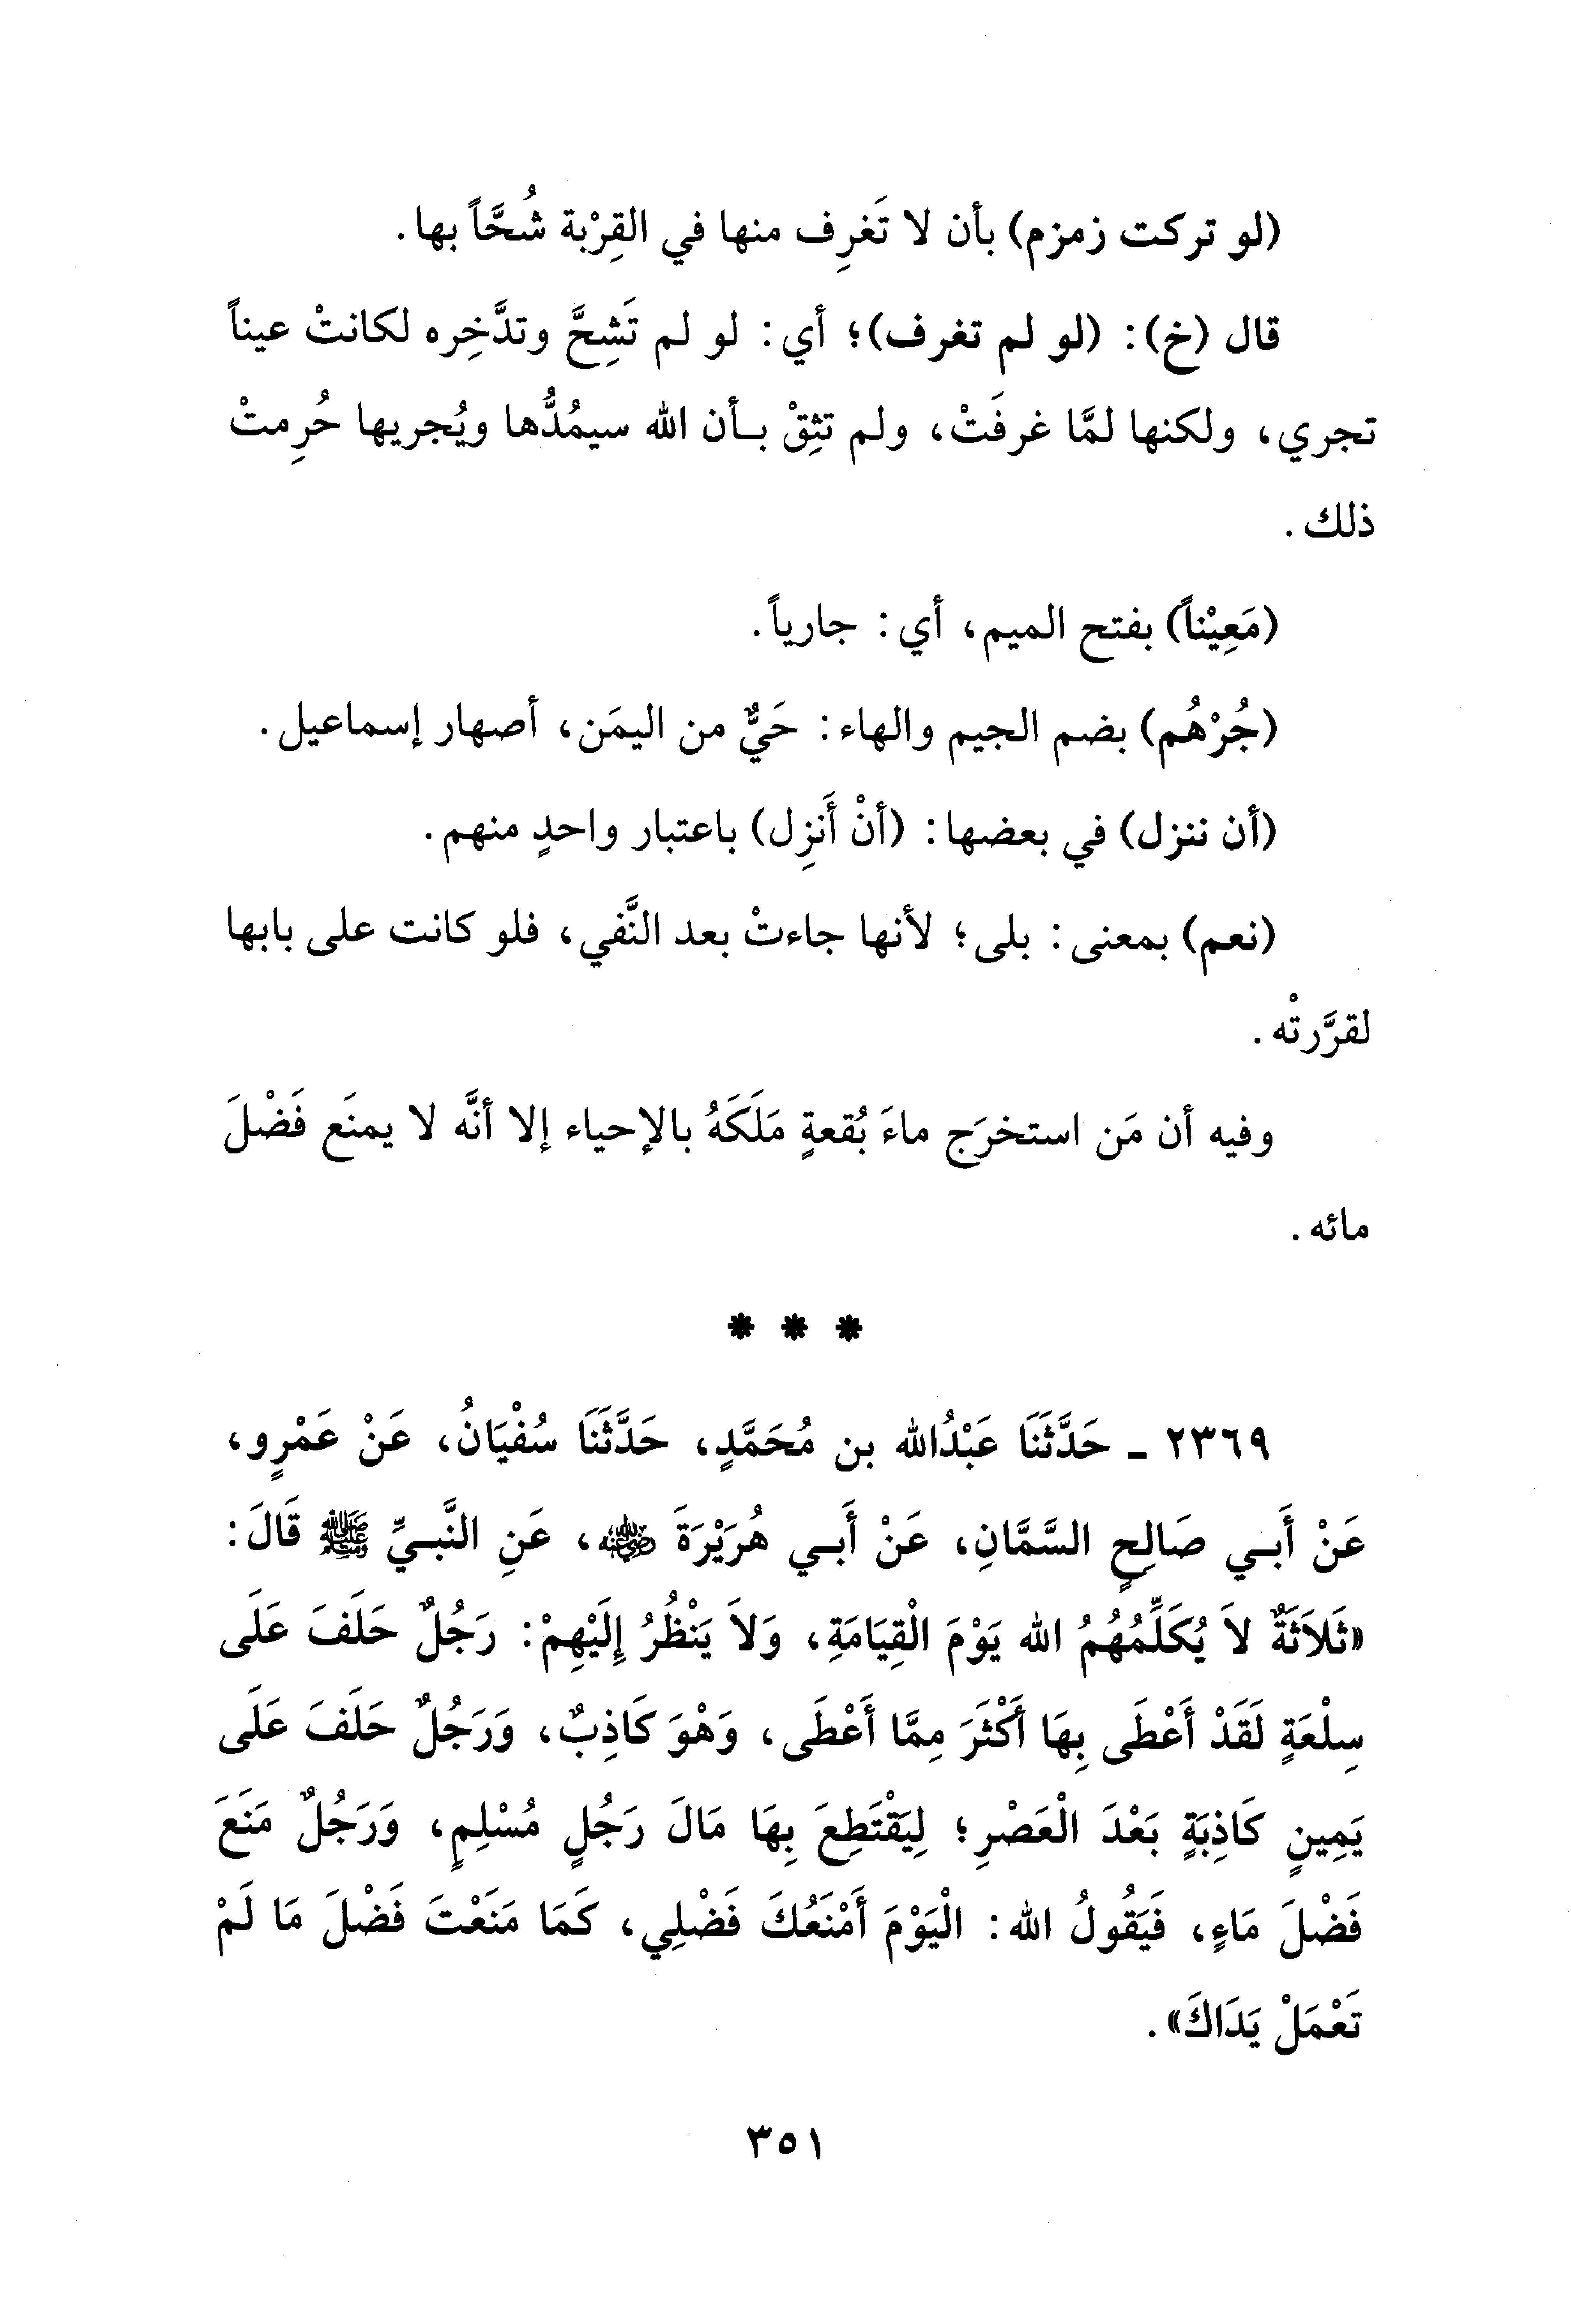 (لو تركت زمزم) بأن لا تَغرِف منها في القِرْبة شُحَّاً بها.
قال (خ): (لو لم تغرف)؛ أي: لو لم تَشِحَّ وتدَّخِره لكانتْ عيناً
تجري، ولكنها لمَّا غرفَتْ، ولم تثِقْ بـأن الله سيمُدُّها ويُجريها حُرِمتْ
ذلك.
(مَعِيْناً) بفتح الميم، أي: جارياً.
(جُرْهُم) بضم الجيم والهاء: حَيٌّ من اليمَن، أصهار إسماعيل.
(أن ننزل) في بعضها: (أنْ أَنزِل) باعتبار واحدٍ منهم.
(نعم) بمعنى: بلى؛ لأنها جاءتْ بعد النَّفي، فلو كانت على بابها
لقرَّرتْه.
وفيه أن مَن استخرَج ماءَ بُقعةٍ مَلَكَهُ بالإحياء إلا أنَّه لا يمنَع فَضْلَ
مائه.
* * *
٢٣٦٩ ـ حَدَّثَنَا عَبْدُالله بن مُحَمَّدٍ، حَدَّثَنَا سُفْيَانُ، عَنْ عَمْرٍو،
عَنْ أَبـي صَالِحٍ السَّمَّانِ، عَنْ أَبـي هُرَيْرَةَ ﵁، عَنِ النَّبـيِّ ﷺ قَالَ:
«ثَلاَثَةٌ لاَ يُكَلِّمُهُمُ الله يَوْمَ الْقِيَامَةِ، وَلاَ يَنْظُرُ إِلَيْهِمْ: رَجُلٌ حَلَفَ عَلَى
سِلْعَةٍ لَقَدْ أَعْطَى بِهَا أَكْثَرَ مِمَّا أَعْطَى، وَهْوَ كَاذِبٌ، وَرَجُلٌ حَلَفَ عَلَى
يَمِينٍ كَاذِبَةٍ بَعْدَ الْعَصْرِ؛ لِيَقْتَطِعَ بِهَا مَالَ رَجُلٍ مُسْلِمٍ، وَرَجُلٌ مَنَعَ
فَضْلَ مَاءٍ، فَيَقُولُ الله: الْيَوْمَ أَمْنَعُكَ فَضْلِي، كَمَا مَنَعْتَ فَضْلَ مَا لَمْ
تَعْمَلْ يَدَاكَ».
٣٥١